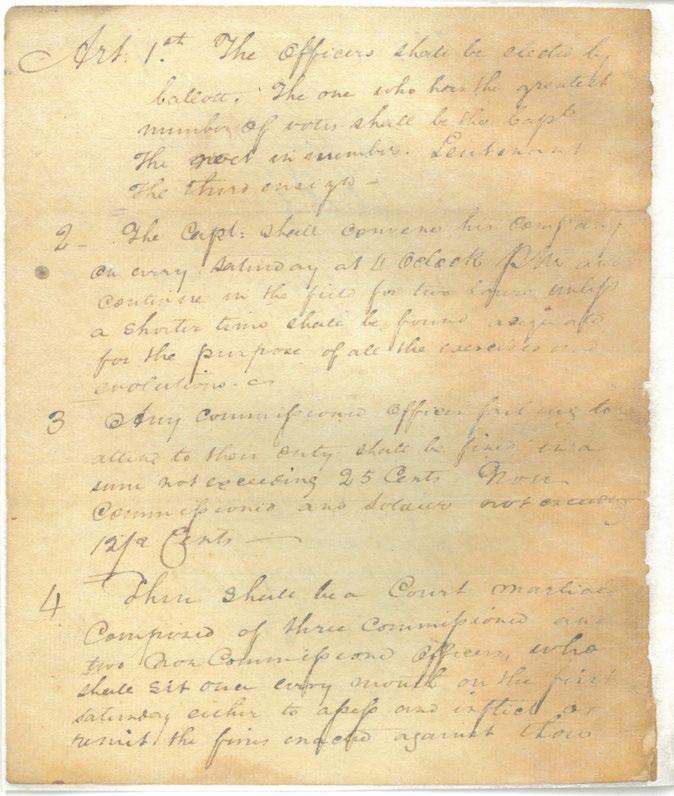 Art. 1.st The Officers shall be elected by
ballott. The one who has the greatest
number of votes shall be the Capt
The next in number. Leutenant
The third ensign —
2 - The Capt: shall convene his Company
on every saturday at 4 Oclock PM and
continue in the field for two hours unless
a shorter time shall be found adequate
for the purpose of all the exercises and
evolutions.
3 Any commissioned Officer failing to
attend to their duty shall be fined in a
sum not exceeding 25 Cents Non
Commissioned and soldier not exceeding
12/2 Cents —
4 There shall be a Court martial
Composed of three Commissioned and
two Non Commissioned Officers, who
shall sit once every month on the first
saturday either to assess and inflict or
remit the fines enacted against those